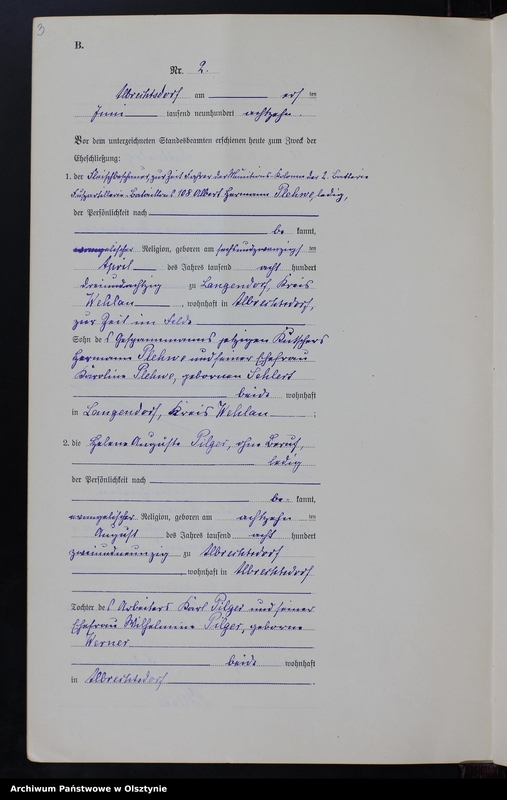 3
B.
Nr. 2.
Albrechtsdorf am ersten
Juni tausend neunhundert achtzehn.
Vor dem unterzeichneten Standesbeamten erschienen heute zum Zweck der
Eheschließung:
1. der Fleischbeschauer, zur Zeit Fahrer der Munitions-Kolonne der 2. Batterie
Fußartillerie-Bataillons 108 Albert Hermann Plehwe, ledig,
der Persönlichkeit nach
be kannt,
evangelischer Religion, geboren am sechsundzwanzigsten
April des Jahres tausend acht hundert
dreiundachtzig zu Langendorf, Kreis
Wehlau, wohnhaft in Albrechtsdorf,
zur Zeit im Felde
Sohn des Gespannmanns jetzigen Kutschers
Hermann Plehwe und seiner Ehefrau
Karoline Plehwe, gebornen Sehlert
beide wohnhaft
in Langendorf, Kreis Wehlau;
2. die Helene Auguste Pilger, ohne Beruf,
ledig
der Persönlichkeit nach
be- kannt,
evangelischer Religion, geboren am achtzehnten
August des Jahres tausend acht hundert
zweiundneunzig zu Albrechtsdorf
, wohnhaft in Albrechtsdorf
Tochter des Arbeiters Karl Pilger und seiner
Ehefrau Wilhelmine Pilger, geborne
Werner
beide wohnhaft
in Albrechtsdorf.
Archiwum Państwowe w Olsztynie